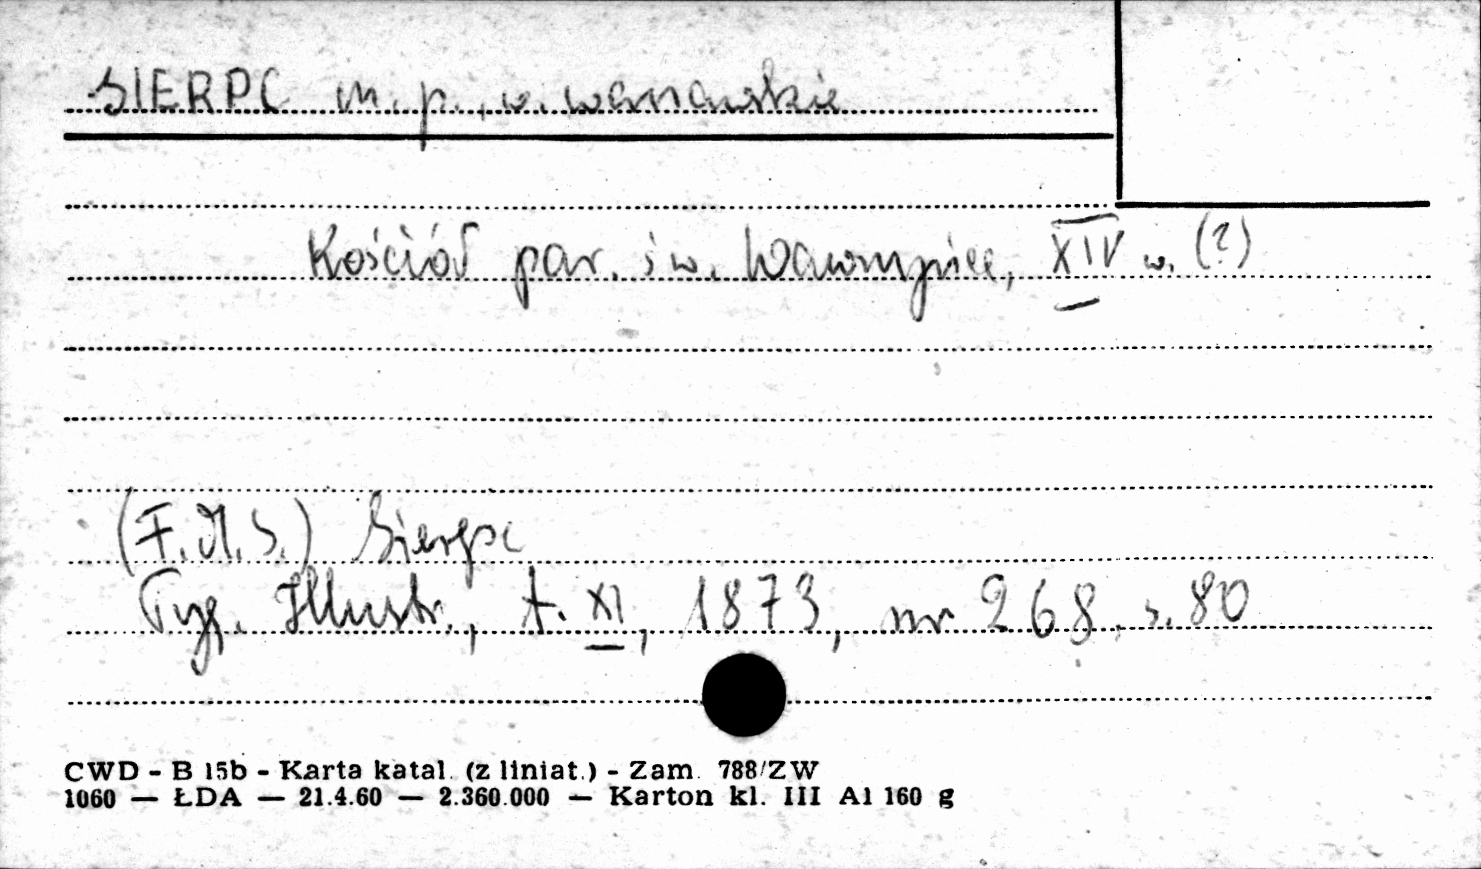 SIERPC m. p., w. warszawskie
Kościół par. św. Wawrzyńca, XIV w. (?)
(F. M. S.) Sierpc
Tyg. Illustr., t. XI, 1873, nr 268, s. 80
CWD - B 15b - Karta katal. (z liniat.) - Zam. 788/ZW
1060 — ŁDA — 21.4.60 — 2.360.000 — Karton kl. III A1 160 g